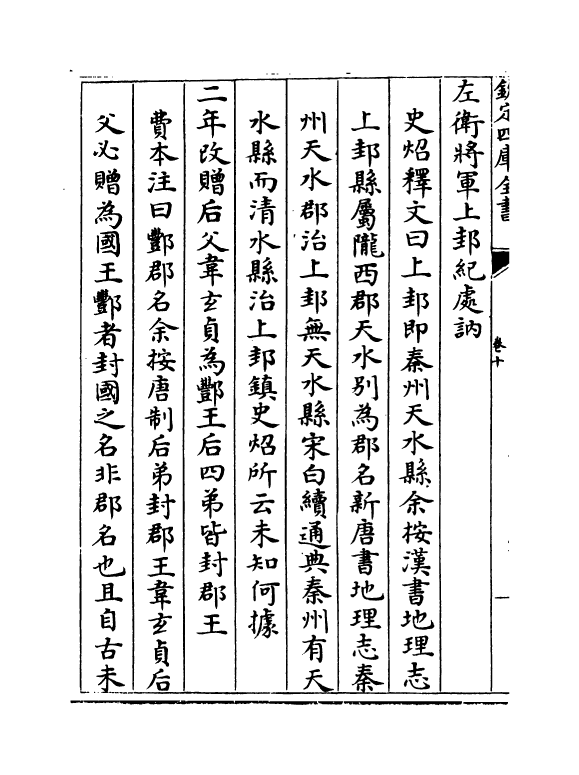 欽定四庫全書
卷十
左衛將軍上邽紀處訥
史炤釋文曰上邽即秦州天水縣余按漢書地理志
上邽縣屬隴西郡天水别為郡名新唐書地理志秦
州天水郡治上邽無天水縣宋白續通典秦州有天
水縣而清水縣治上邽鎮史炤所云未知何據
二年改贈后父韋玄貞為酆王后四弟皆封郡王
費本注曰酆郡名余按唐制后弟封郡王韋玄貞后
父必贈為國王酆者封國之名非郡名也且自古未